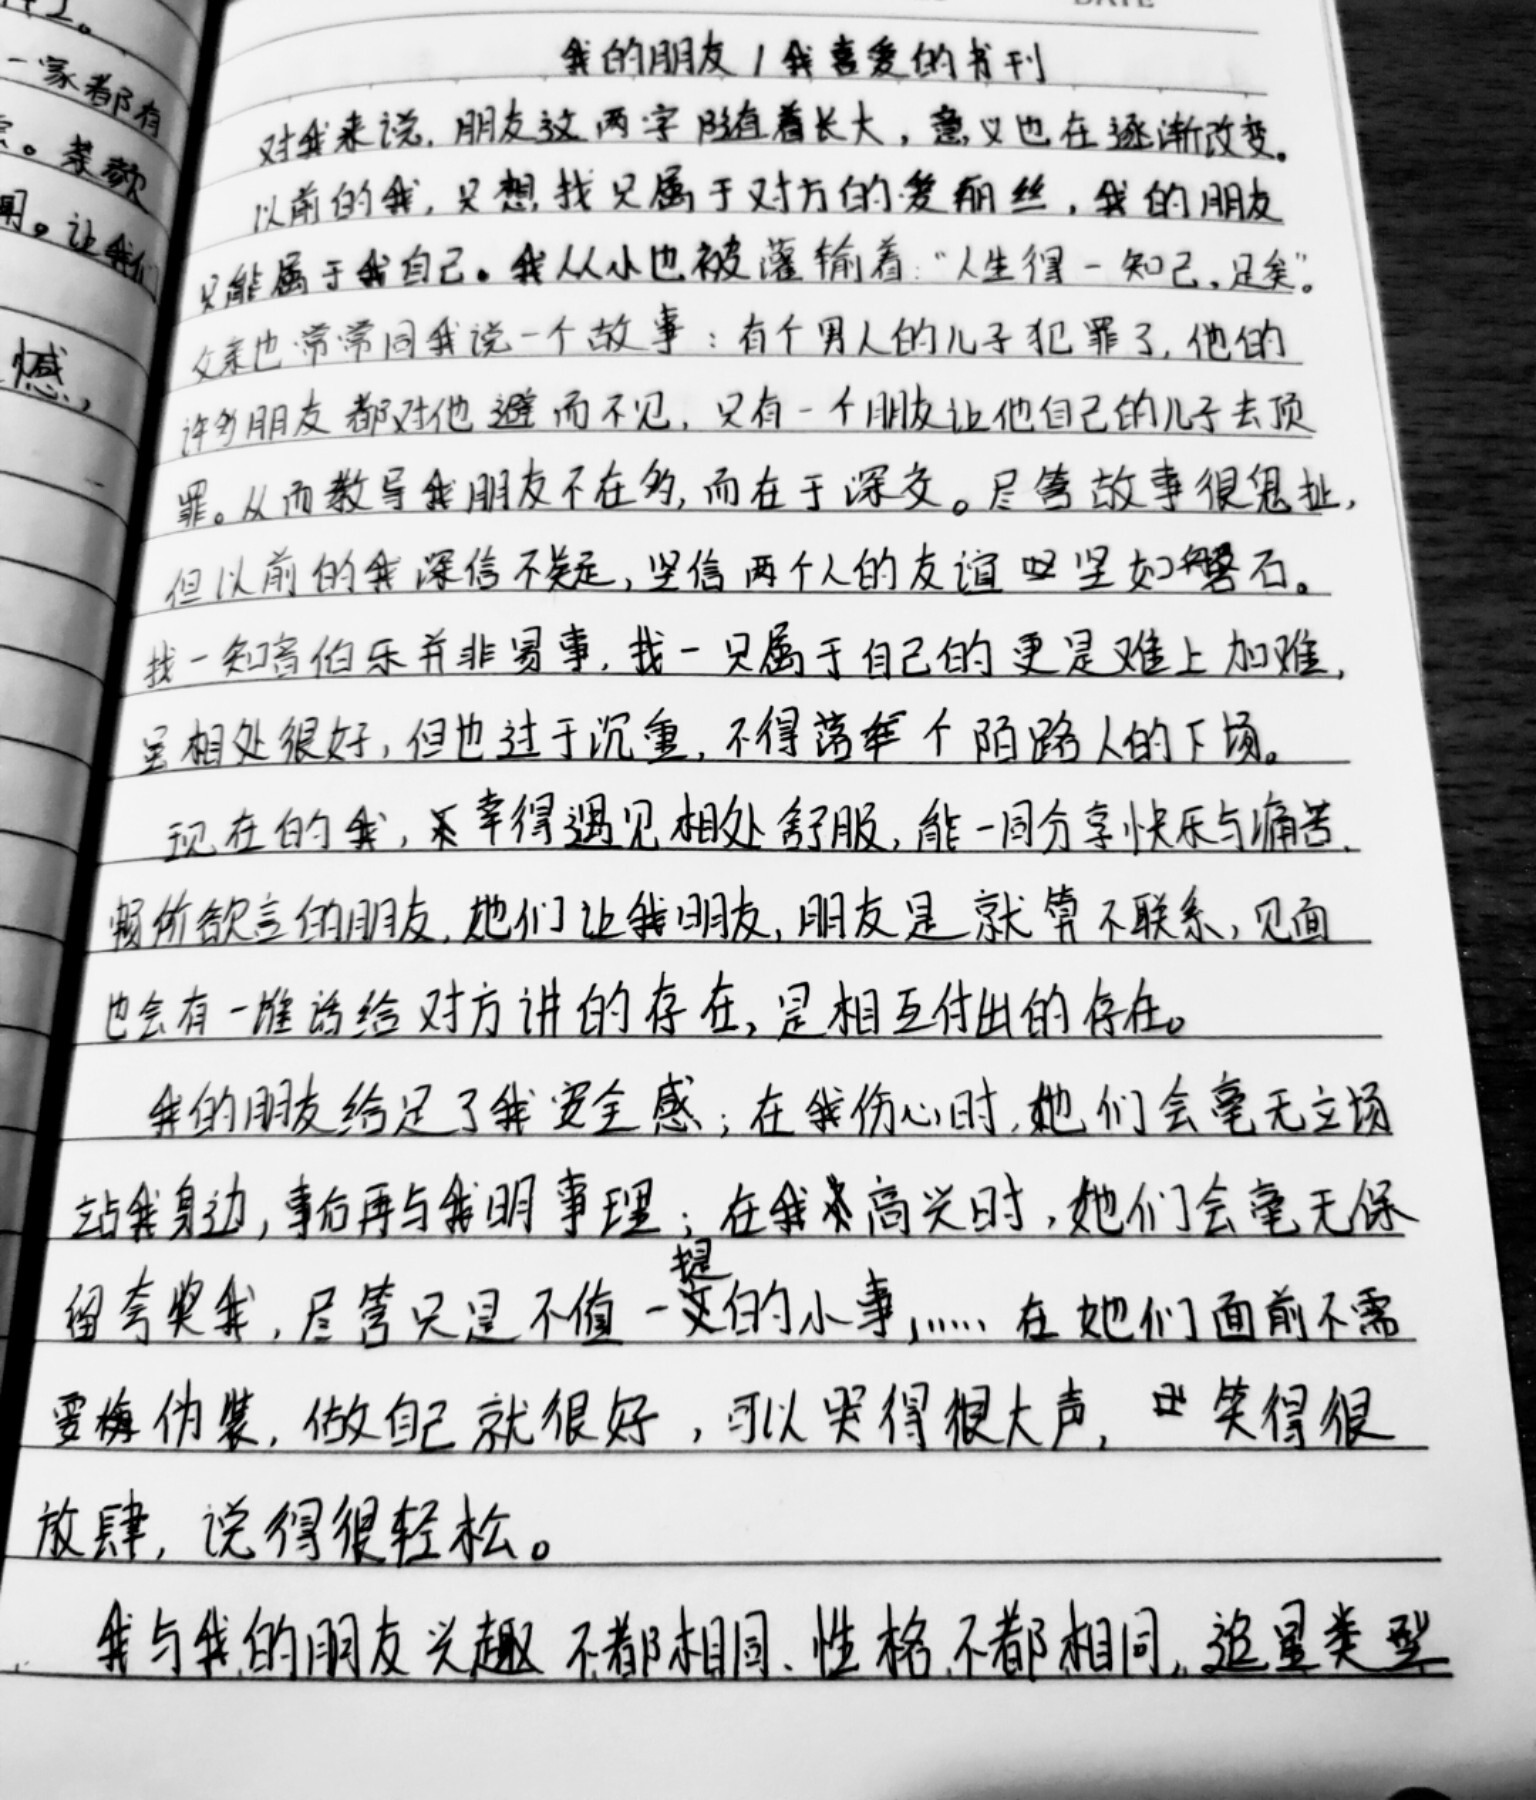 DATE
一家都有
。恭敬
用。让我们
憾,
我的朋友/我喜爱的书刊
对我来说,朋友这两字随着长大,意义也在逐渐改变。
以前的我,只想找只属于对方的爱丽丝,我的朋友
只能属于我自己。我从小也被灌输着:“人生得一知己,足矣”。
父亲也常常同我说一个故事:有个男人的儿子犯罪了,他的
许多朋友都对他避而不见,只有一个朋友让他自己的儿子去顶
罪。从而教导我朋友不在多,而在于深交。尽管故事很鬼扯,
但以前的我深信不疑,坚信两个人的友谊坚如磐石。
找一知音伯乐并非易事,找一只属于自己的更是难上加难,
虽相处很好,但也过于沉重,不得落个陌路人的下场。
现在的我,幸得遇见相处舒服,能一同分享快乐与痛苦、
畅所欲言的朋友,她们让我明友,朋友是就算不联系,见面
也会有一堆话给对方讲的存在,是相互付出的存在。
我的朋友给足了我安全感;在我伤心时,她们会毫无立场
站我身边,事后再与我明事理;在我高兴时,她们会毫无保
留夸奖我,尽管只是不值一提的小事,……在她们面前不需
要伪装,做自己就很好,可以哭得很大声,笑得很
放肆,说得很轻松。
我与我的朋友兴趣不都相同、性格不都相同,追星类型